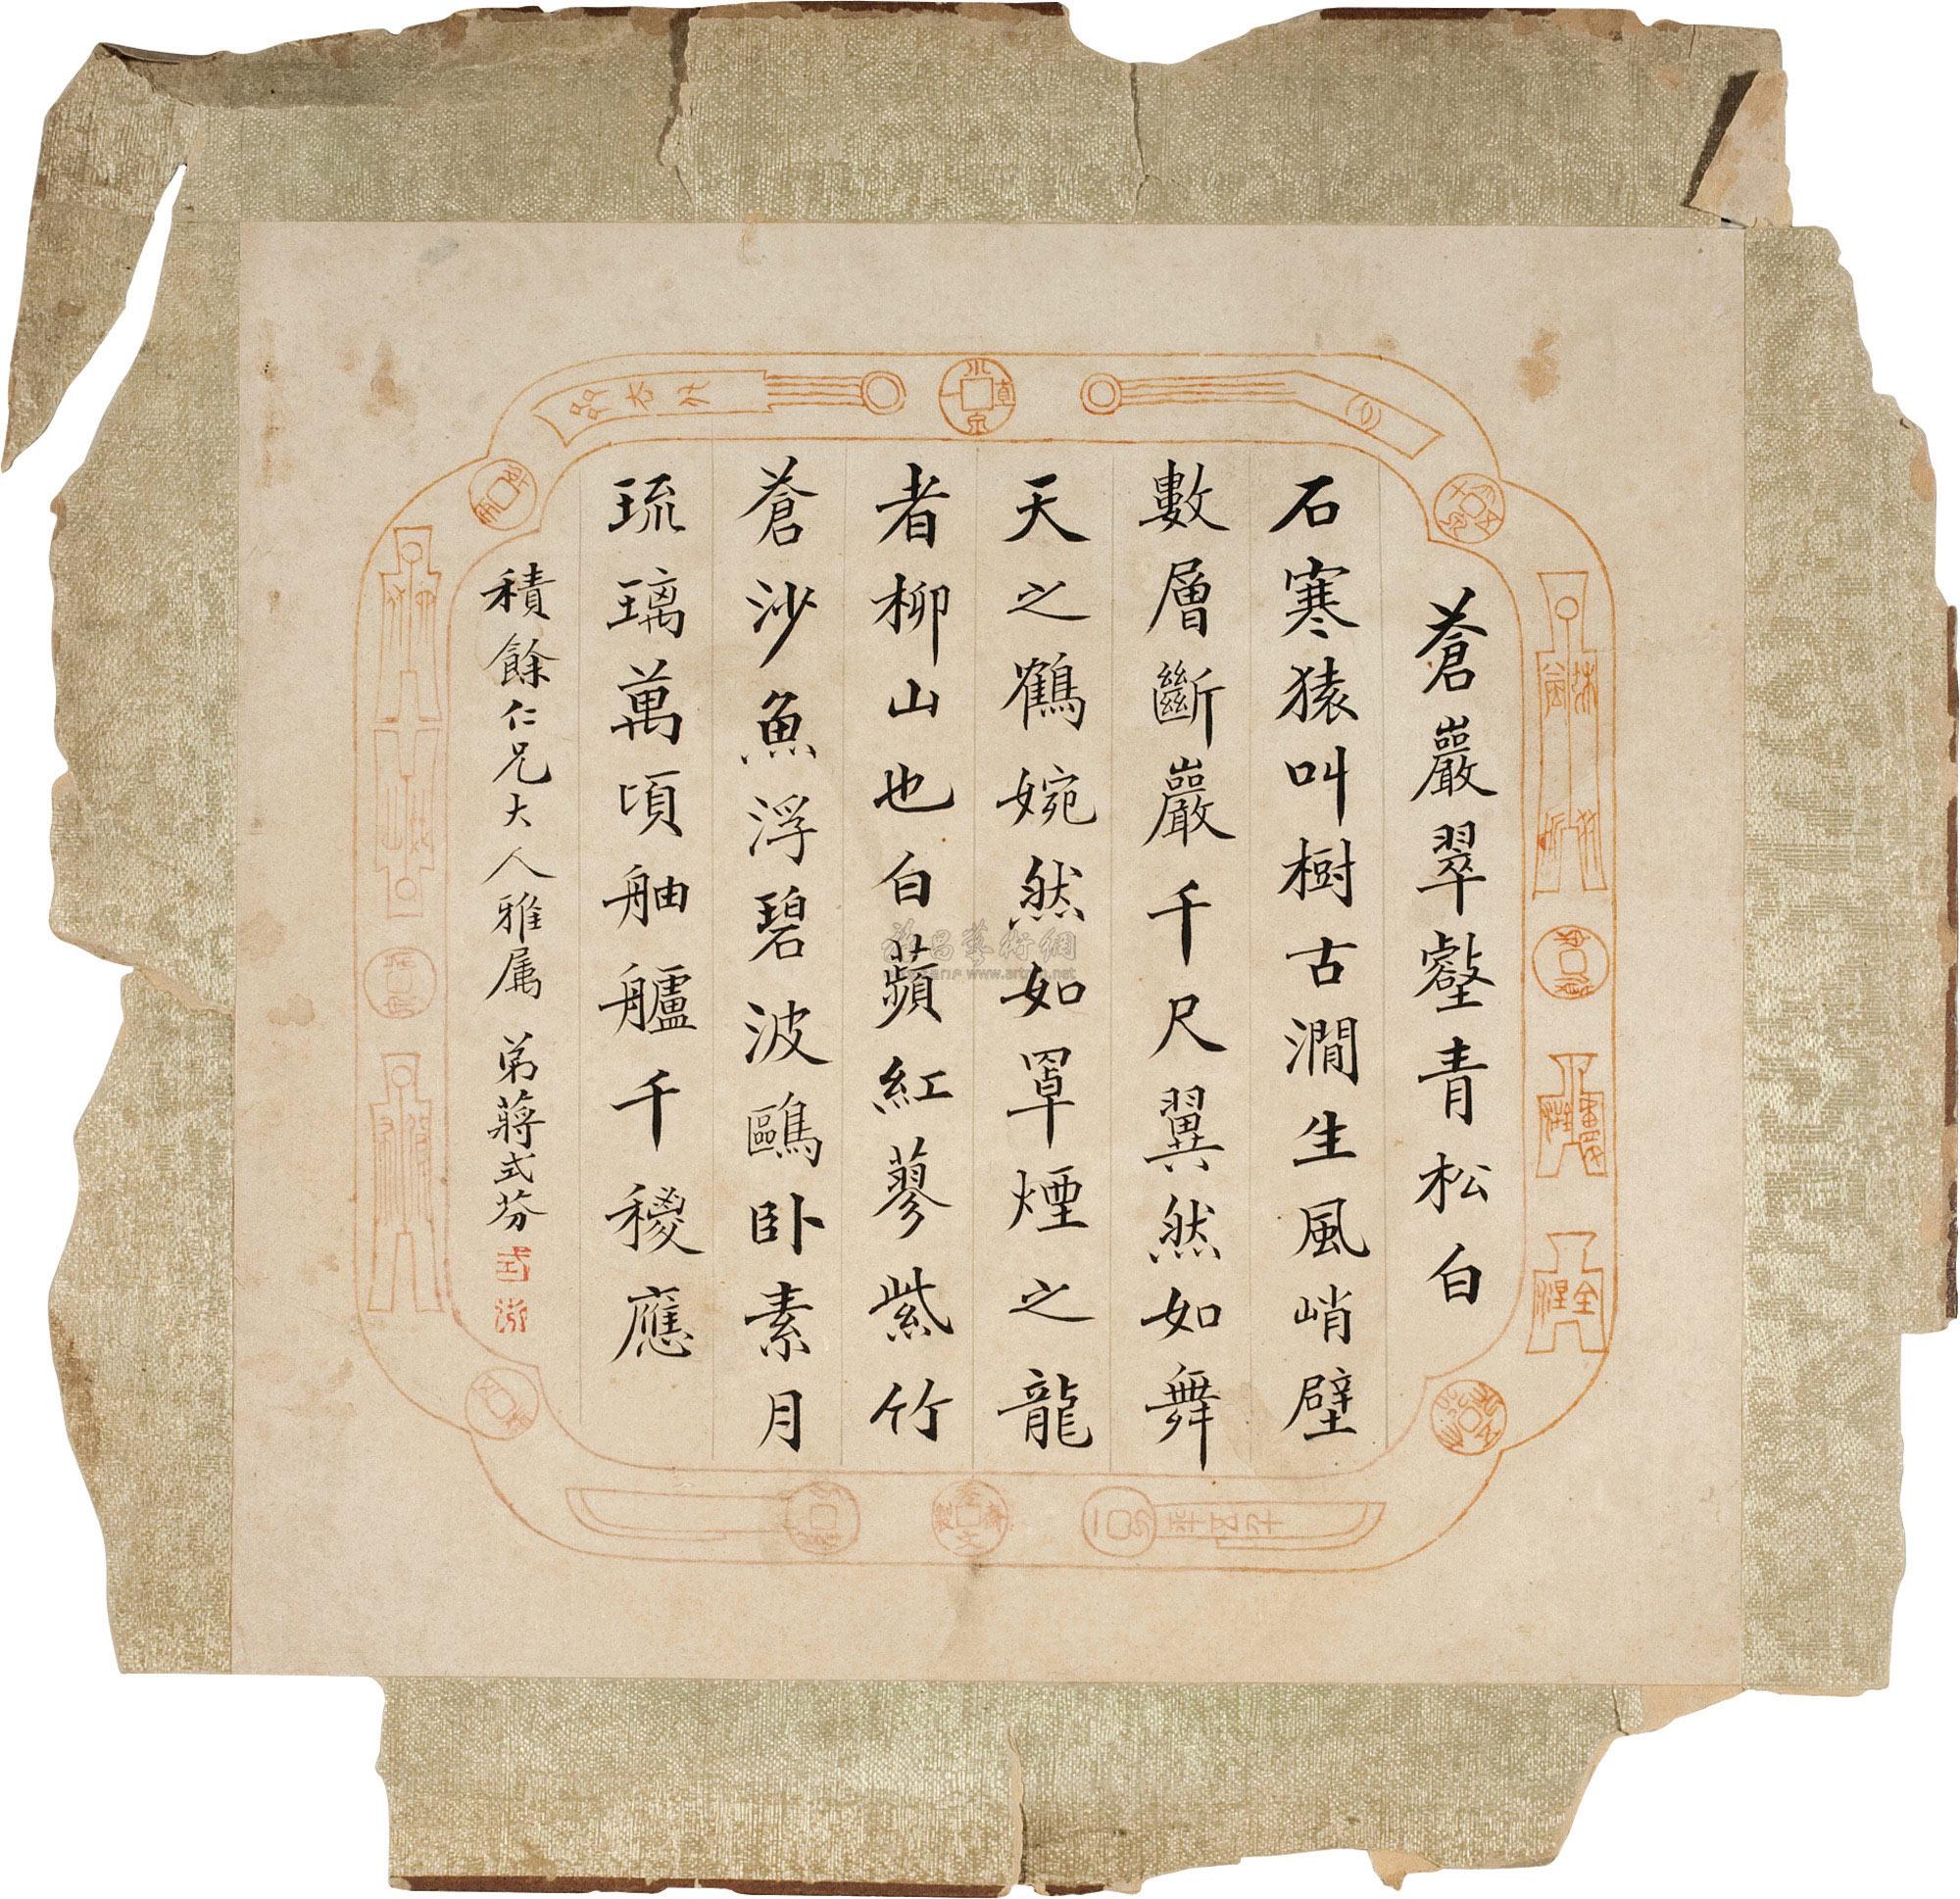 蒼巖翠壑青松白
石寒猿叫樹古澗生風峭壁
數層斷巖千尺翼然如舞
天之鶴婉然如罩煙之龍
者柳山也白蘋紅蓼紫竹
蒼沙魚浮碧波鷗卧素月
琉璃萬頃舳艫千稷應
積餘仁兄大人雅属 弟蔣式芬
www.artrip.net